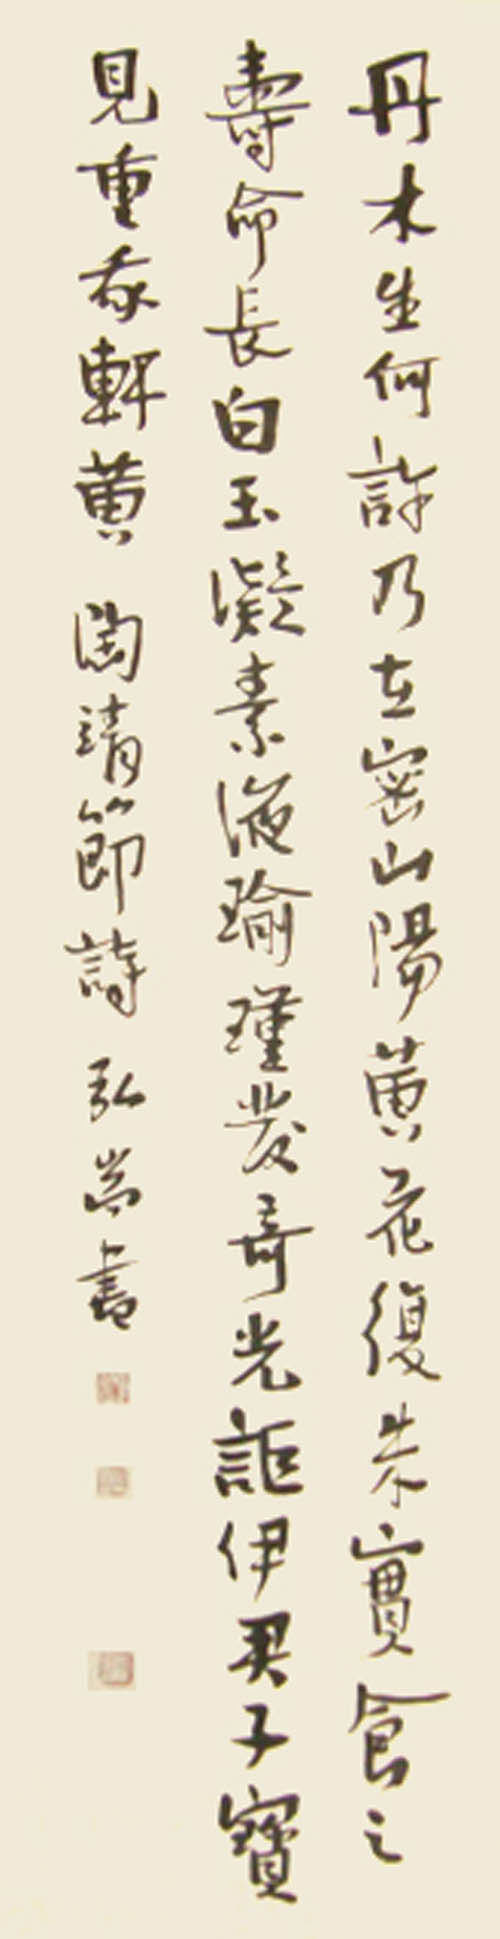 丹木生何許乃在密山陽黄花復朱實食之
壽命長白玉凝素液瑜瑾發奇光詎伊君子寶
見重我軒黄 陶靖節詩 弘尚書